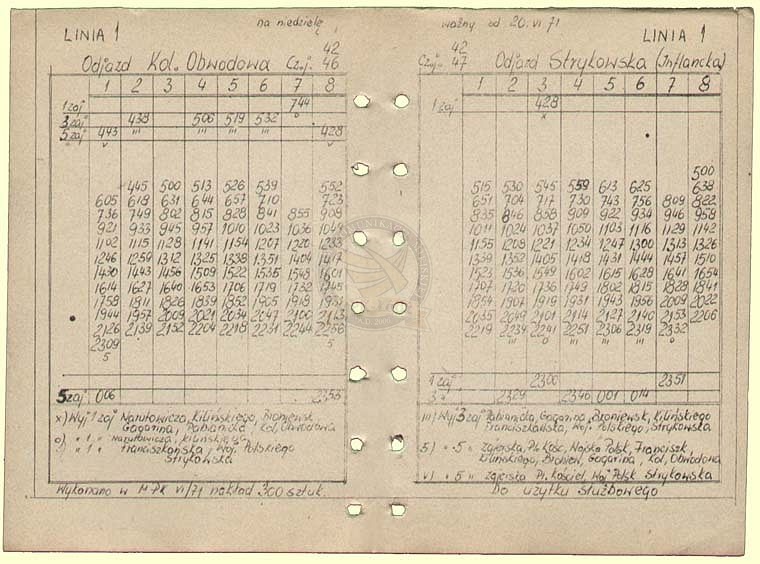 LINIA 1
na niedzielę
Odjazd Kol. Obwodowa Czoj. 42 46
1 2 3 4 5 6 7 8
1 zaj 744
o
3 zaj 438 506 519 532
5 zaj 443 ııı ııı ııı ııı 428
v v
445 500 513 526 539 552
605 618 631 644 657 710 723
736 749 802 815 828 841 855 908
921 933 945 957 1010 1023 1036 1049
1102 1115 1128 1141 1154 1207 1220 1233
1246 1259 1312 1325 1338 1351 1404 1417
1430 1443 1456 1509 1522 1535 1548 1601
1614 1627 1640 1653 1706 1719 1732 1745
1758 1811 1826 1839 1852 1905 1918 1931
1944 1957 2009 2021 2034 2047 2100 2113
2126 2139 2152 2204 2218 2231 2244 2256
2309 5
5
5 zaj 006 2353
x) Wyj 1 zaj Narutowicza, Kilińskiego, Broniewsk,
Gagarina, Pabianicka, Kol, Obwodowa
o) " 1 " Narutowicza, Kilińskiego
" 1 " Franciszkańska, Woj. Polskiego
Strykowska
Wykonano w MPK VI/71 nakład 300 sztuk.
ważny od 20.VI 71
LINIA 1
Czoj. 42 47 Odjazd Strykowska (Inflancka)
1 2 3 4 5 6 7 8
1 zaj 428
x
500
515 530 545 559 613 625 638
651 704 717 730 743 756 809 822
835 846 858 909 922 934 946 958
1011 1024 1037 1050 1103 1116 1129 1142
1155 1208 1221 1234 1247 1300 1313 1326
1339 1352 1405 1418 1431 1444 1457 1510
1523 1536 1549 1602 1615 1628 1641 1654
1707 1720 1736 1749 1802 1815 1828 1841
1854 1907 1919 1931 1943 1956 2009 2022
2035 2049 2101 2114 2127 2140 2153 2206
2219 2234 2241 2251 2306 2319 2332
ııı o ııı ııı ııı o
1 zaj 2300 2351
3 " 2329 2346 001 014
ııı) Wyj 3 zaj Pabianicka, Gagarina, Broniewsk, Kilińskiego
Franciszkańska, Woj. Polskiego, Strykowska
5) " 5 " Zgierska, Pl. Kośc, Wojska Polsk, Franciszk
Kilińskiego, Broniew, Gagarina, Kol, Obwodowa
v) " 5 " Zgierska Pl. Kościel, Woj Polsk Strykowska
Do użytku służbowego